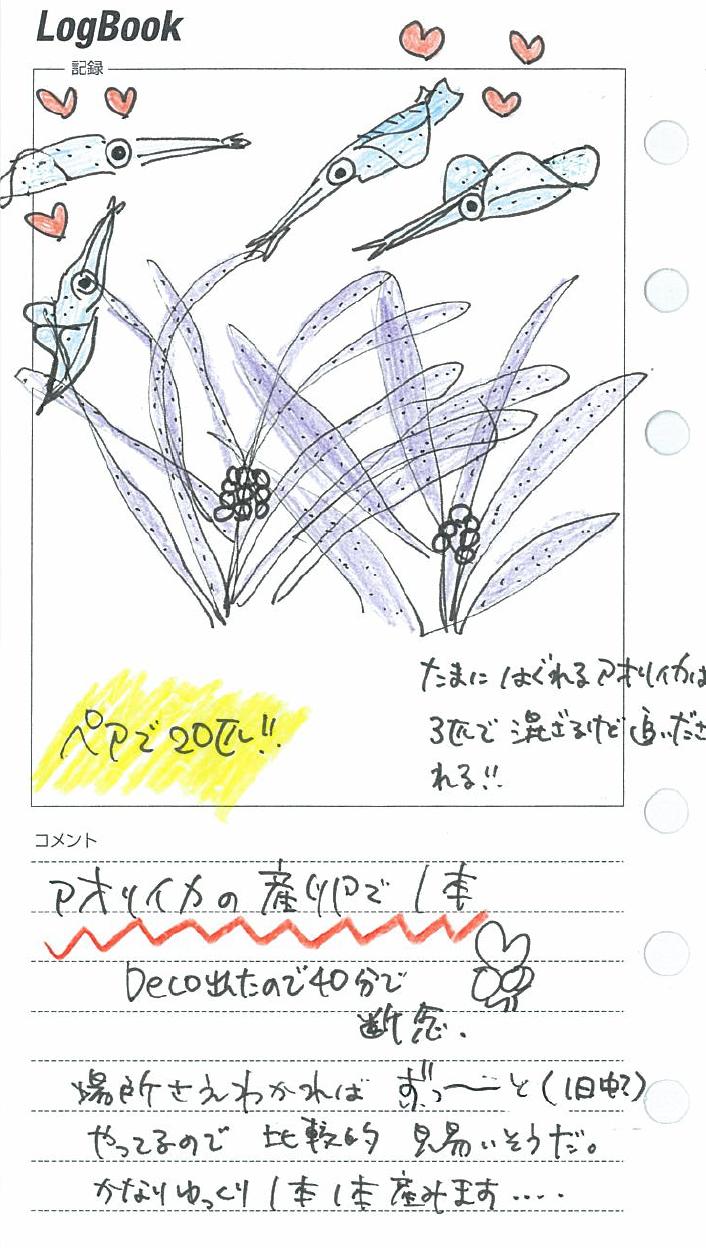 LogBook
記録
たまに はぐれるアオリイカは
3匹で 混ざるけど 追いださ
れる!!
ペアで20匹!!
コメント
アオリイカの 産卵で 1本
Deco出たので40分で
断念.
場所さえわかれば ずっ〜と (1日中?)
やってるので 比較的 見易いそうだ。
かなりゆっくり 1本 1本 産みます‥‥